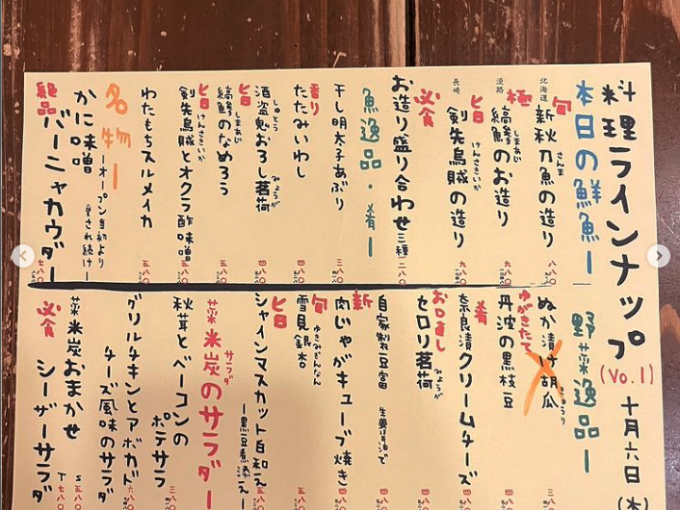 料理ラインナップ
(Vo.1)
十月六日(木)
本日の鮮魚ー
旬
北海道
新秋刀魚の造り
さんま
八八〇
極
淡路
縞鯵のお造り
しまあじ
ヒロ
長崎
剣先烏賊の造り
けんさきいか
九八〇
必食
お造り盛り合わせ 三種
魚逸品・肴ー
干し明太子あぶり
香り
たたみいわし
酒盗
しゅとう
おろし茗荷
みょうが
ヒロ
縞鯵のなめろう
しまあじ
五八〇
ヒロ
剣先烏賊とオクラ酢味噌
けんさきいか
わたもちスルメイカ
五八〇
名物ー
かに味噌
ーオープン当初より
愛され続けー
絶品
バーニャカウダー
七八〇
野菜逸品ー
ぬか漬け胡瓜
きゅうり
ゆがきたて
丹波の黒枝豆
肴
奈良漬クリームチーズ
お口直し
セロリ茗荷
自家製豆富 生醤油で
新
肉じゃがキューブ焼き
旬
雪見銀杏
ゆきみぎんなん
ヒロ
シャインマスカット白和え
ー黒豆煮添えー
菜米炭のサラダー
サラダ
秋茸とベーコンの
ポテサラ
グリルチキンとアボカド
チーズ風味のサラダ
菜米炭おまかせ
必食
シーザーサラダ
S 五八〇
T 七八〇